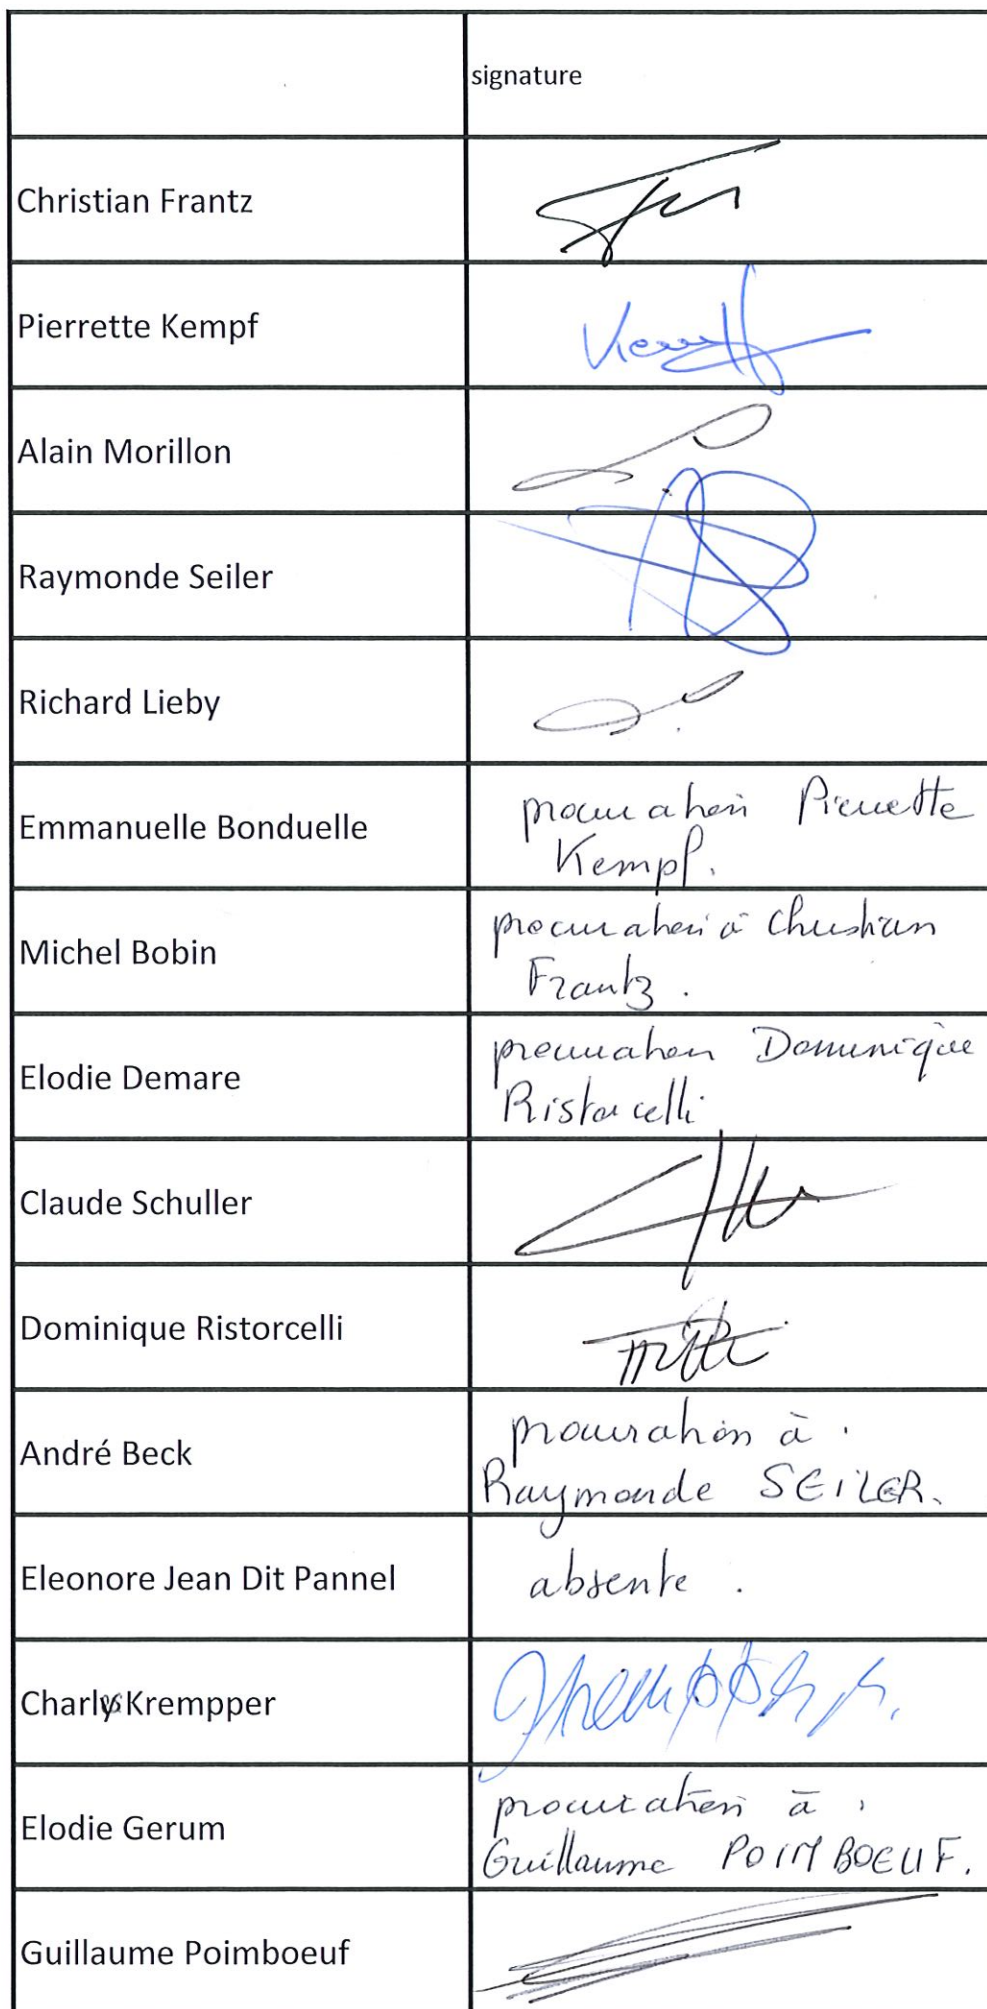 signature
Christian Frantz
Pierrette Kempf
Kempf
Alain Morillon
Raymonde Seiler
Richard Lieby
Emmanuelle Bonduelle
procuration Pierrette
Kempf.
Michel Bobin
procuration à Christian
Frantz.
Elodie Demare
procuration Dominique
Ristorcelli
Claude Schuller
Dominique Ristorcelli
André Beck
procuration à.
Raymonde SEILER.
Eleonore Jean Dit Pannel
absente.
Krempper
Elodie Gerum
procuration à
Guillaume POIMBOEUF.
Guillaume Poimboeuf